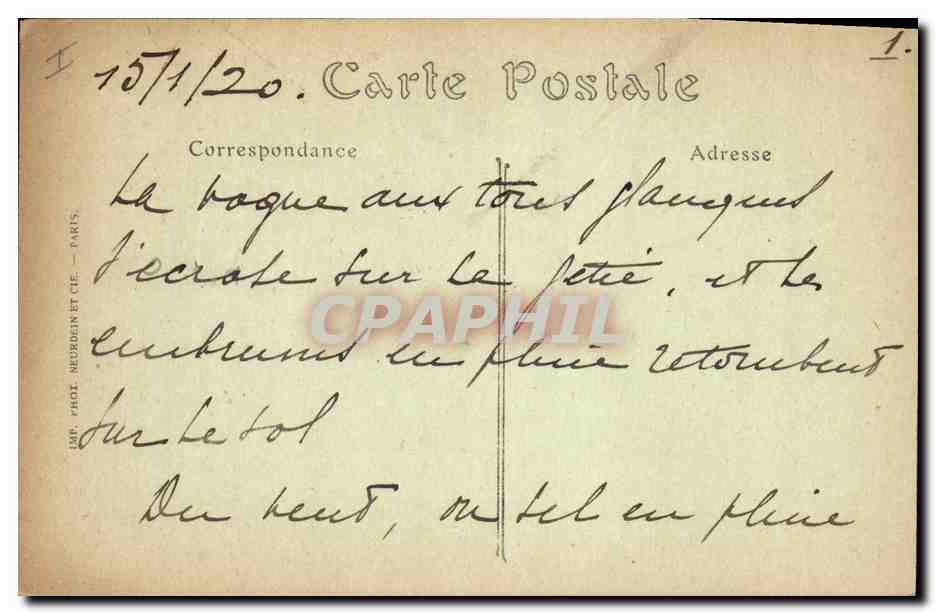 I
15/1/20. Carte Postale
1.
Correspondance
Adresse
La vague aux tons glauques
s'écrase sur la jetée, et les
embruns en pluie retombent
sur le sol
Du vent, du sel en pluie
IMP. PHOT. NEURDEIN ET CIE. — PARIS.
CPAPHIL